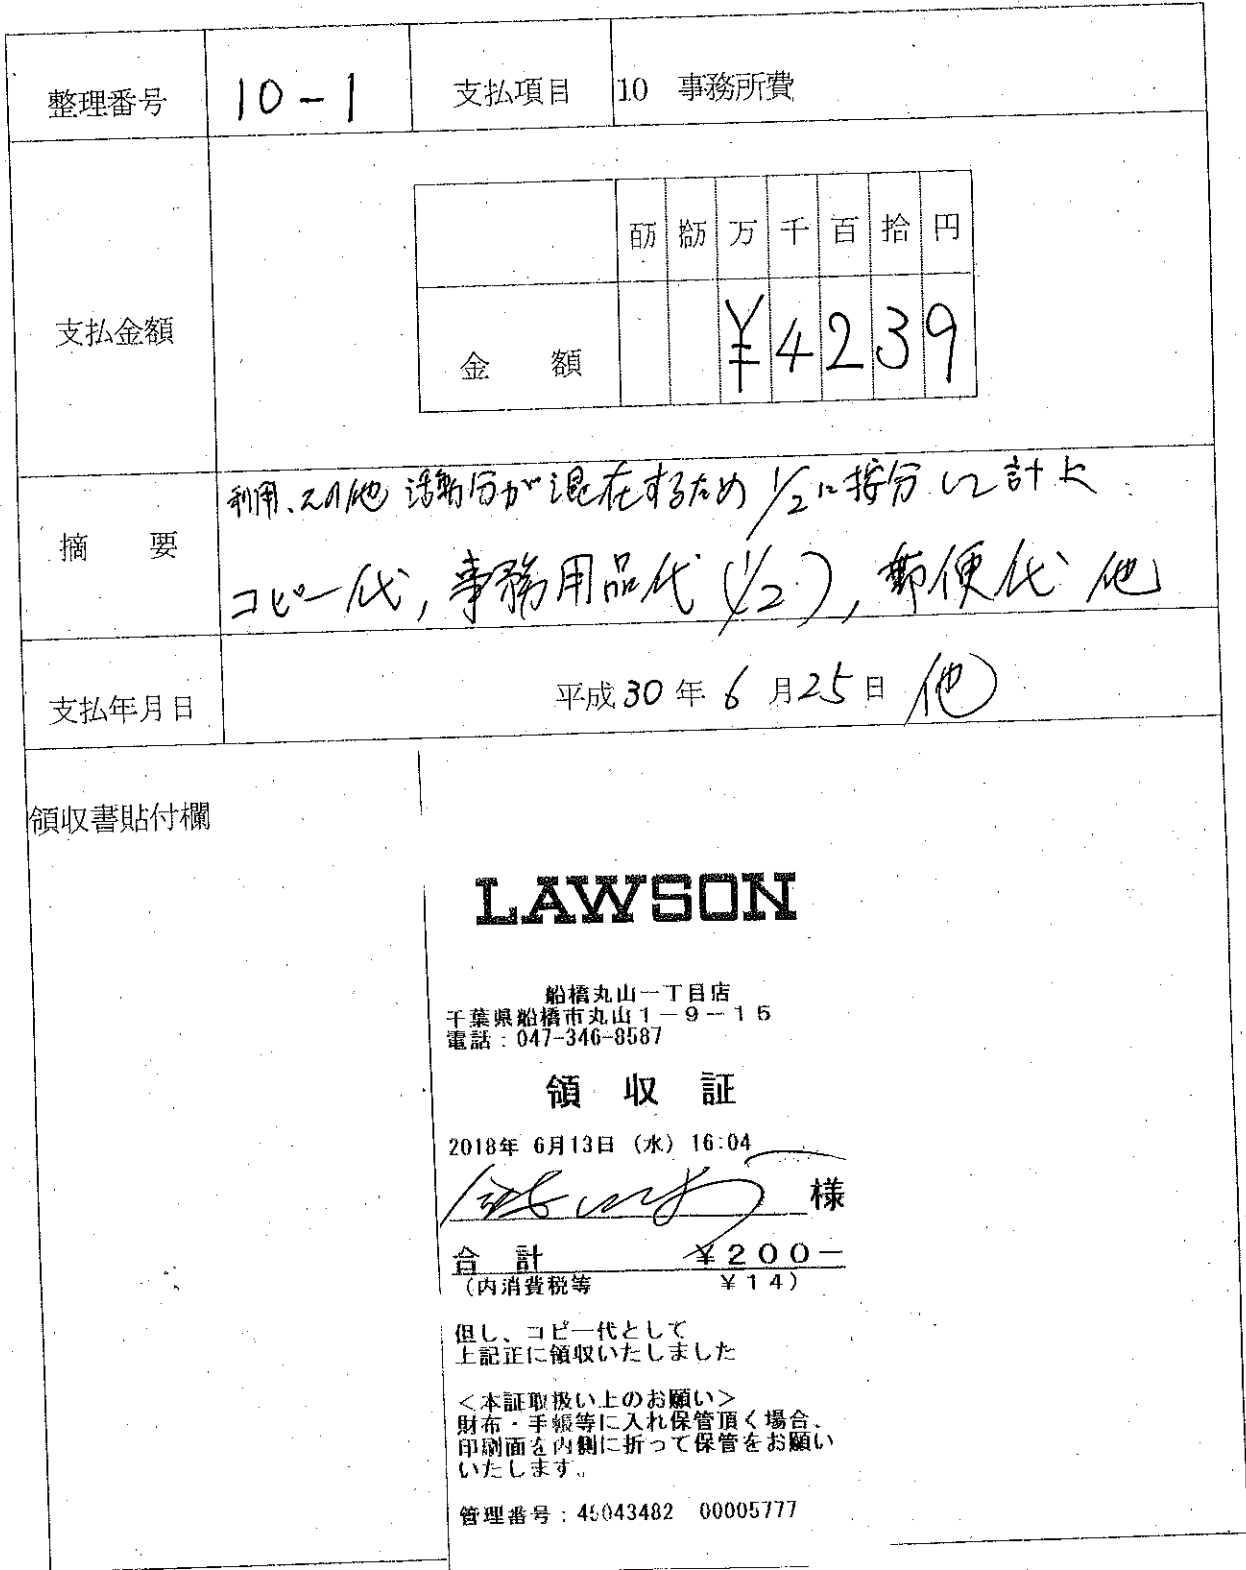 整理番号 10-1 支払項目 10 事務所費
百万 拾万 万 千 百 拾 円
支払金額
金 額 ¥4239
利用、その他 活動分が混在するため 1/2に按分して計上
摘 要
コピー代, 事務用品代(1/2), 郵便代 他
支払年月日 平成30年 6月25日 他
領収書貼付欄
LAWSON
船橋丸山一丁目店
千葉県船橋市丸山1-9-15
電話:047-346-8587
領 収 証
2018年 6月13日 (水) 16:04
様
合 計 ¥200-
(内消費税等 ¥14)
但し、コピー代として
上記正に領収いたしました
<本証取扱い上のお願い>
財布・手帳等に入れ保管頂く場合、
印刷面を内側に折って保管をお願い
いたします。
管理番号:45043482 00005777